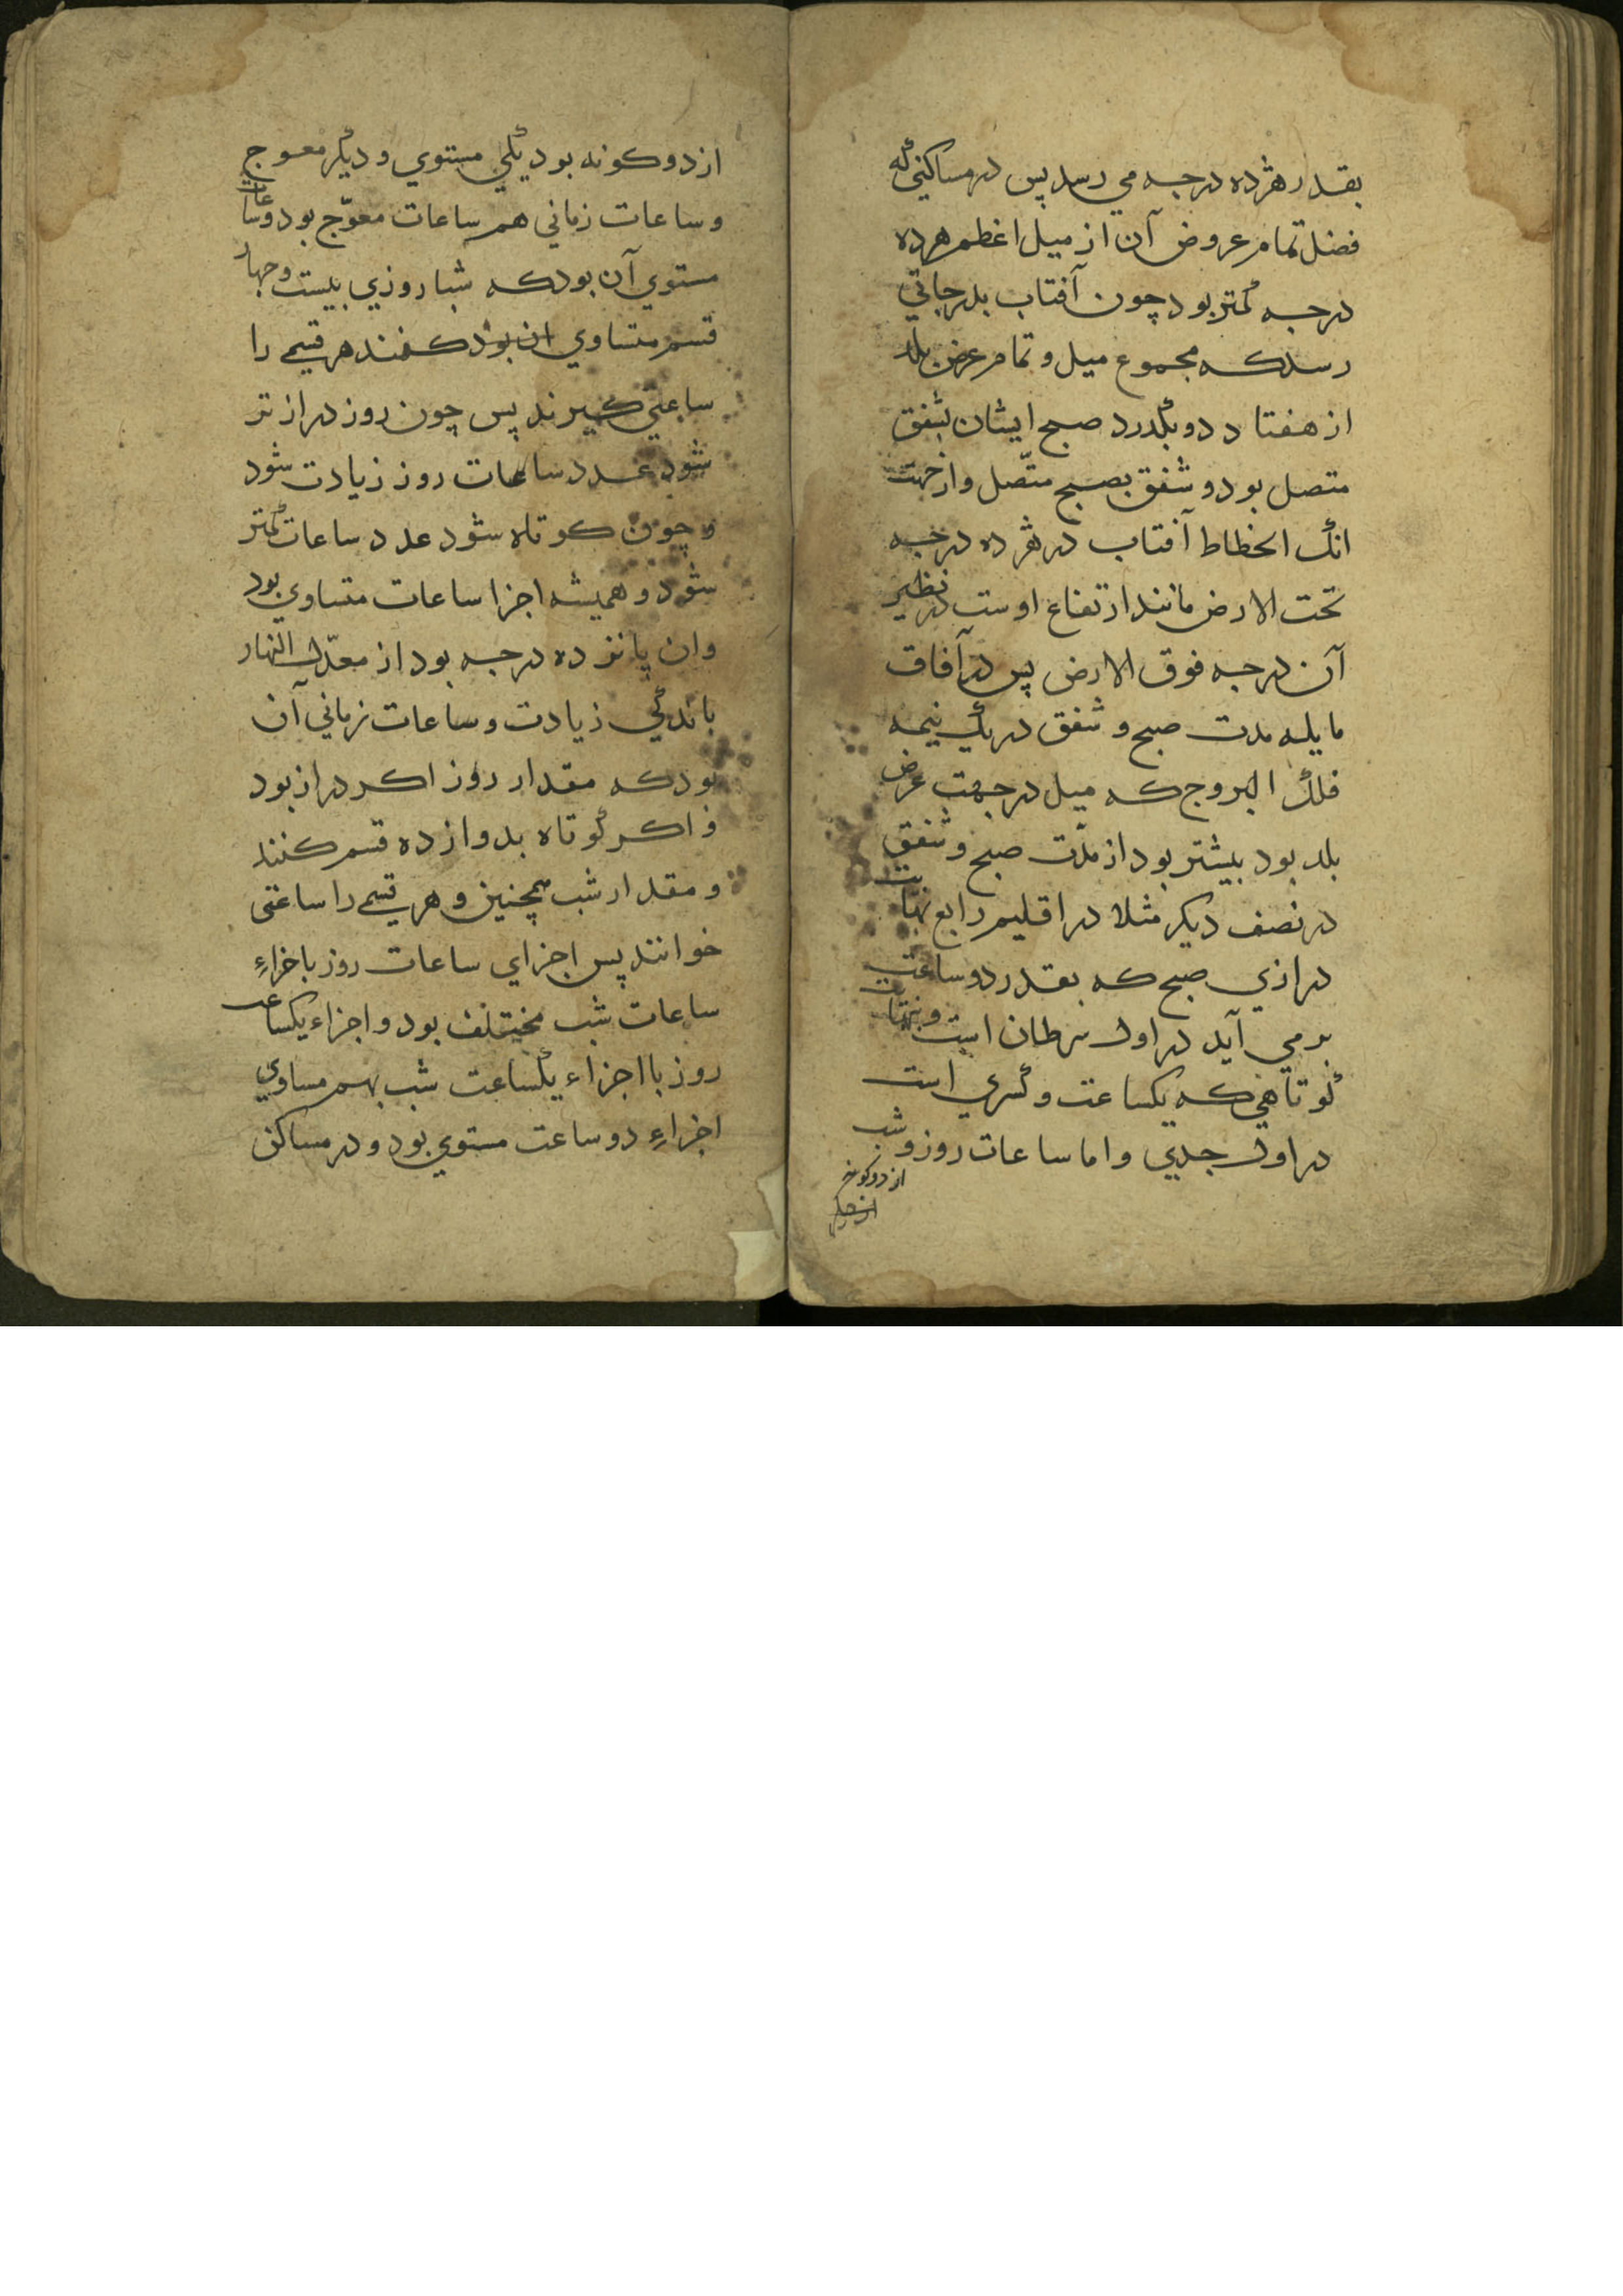 بقدر هژده درجه مي رسد پس در مساكني كه
فضل تمام عروض آن از ميل اعظم هژده
درجه كمتر بود چون آفتاب بدرجاتي
رسد كه مجموع ميل و تمام عرض بلد
از هفتاد دو بگذرد صبح ايشان بشفق
متصل بود و شفق بصبح متّصل و از جهت
انك انحطاط آفتاب در هژده درجه
تحت الارض مانند ارتفاع اوست در نظير
آن درجه فوق الارض پس در آفاق
مايله مدت صبح و شفق در يك نيمه
فلك البروج كه ميل در جهت عرض
بلد بود بيشتر بود از مدّت صبح و شفق
در نصف ديكر مثلا در اقليم رابع نهايت
درازي صبح كه بقدر دو ساعت
بر مي آيد در اول سرطان است و نهايت
كوتاهي كه يكساعت و كسري است
در اول جدي و اما ساعات روز و شب
از دو كونه
از دو كونه بود يكي مستوي و ديكر معوج
و ساعات زماني هم ساعات معوّج بود و ساعات
مستوي آن بود كه شبا روزي بيست و چهار
قسم متساوي كنند هر قسمي را
ساعتي كيرند پس چون روز دراز تر
شود عدد ساعات روز زيادت شود
و چون كوتاه شود عدد ساعات كمتر
شود و هميشه اجزا ساعات متساوي بود
و ان پانزده درجه بود از معدّل النهار
با ندكي زيادت و ساعات زماني آن
بود كه مقدار روز اكر دراز بود
و اكر كوتاه بدوازده قسم كنند
و مقدار شب همچنين و هر قسمي را ساعتى
خوانند پس اجزاي ساعات روز با جزاءِ
ساعات شب مختلف بود و اجزاء يكساعت
روز با اجزاء يكساعت شب بهم مساوي
اجزاءِ دو ساعت مستوي بود و در مساكن